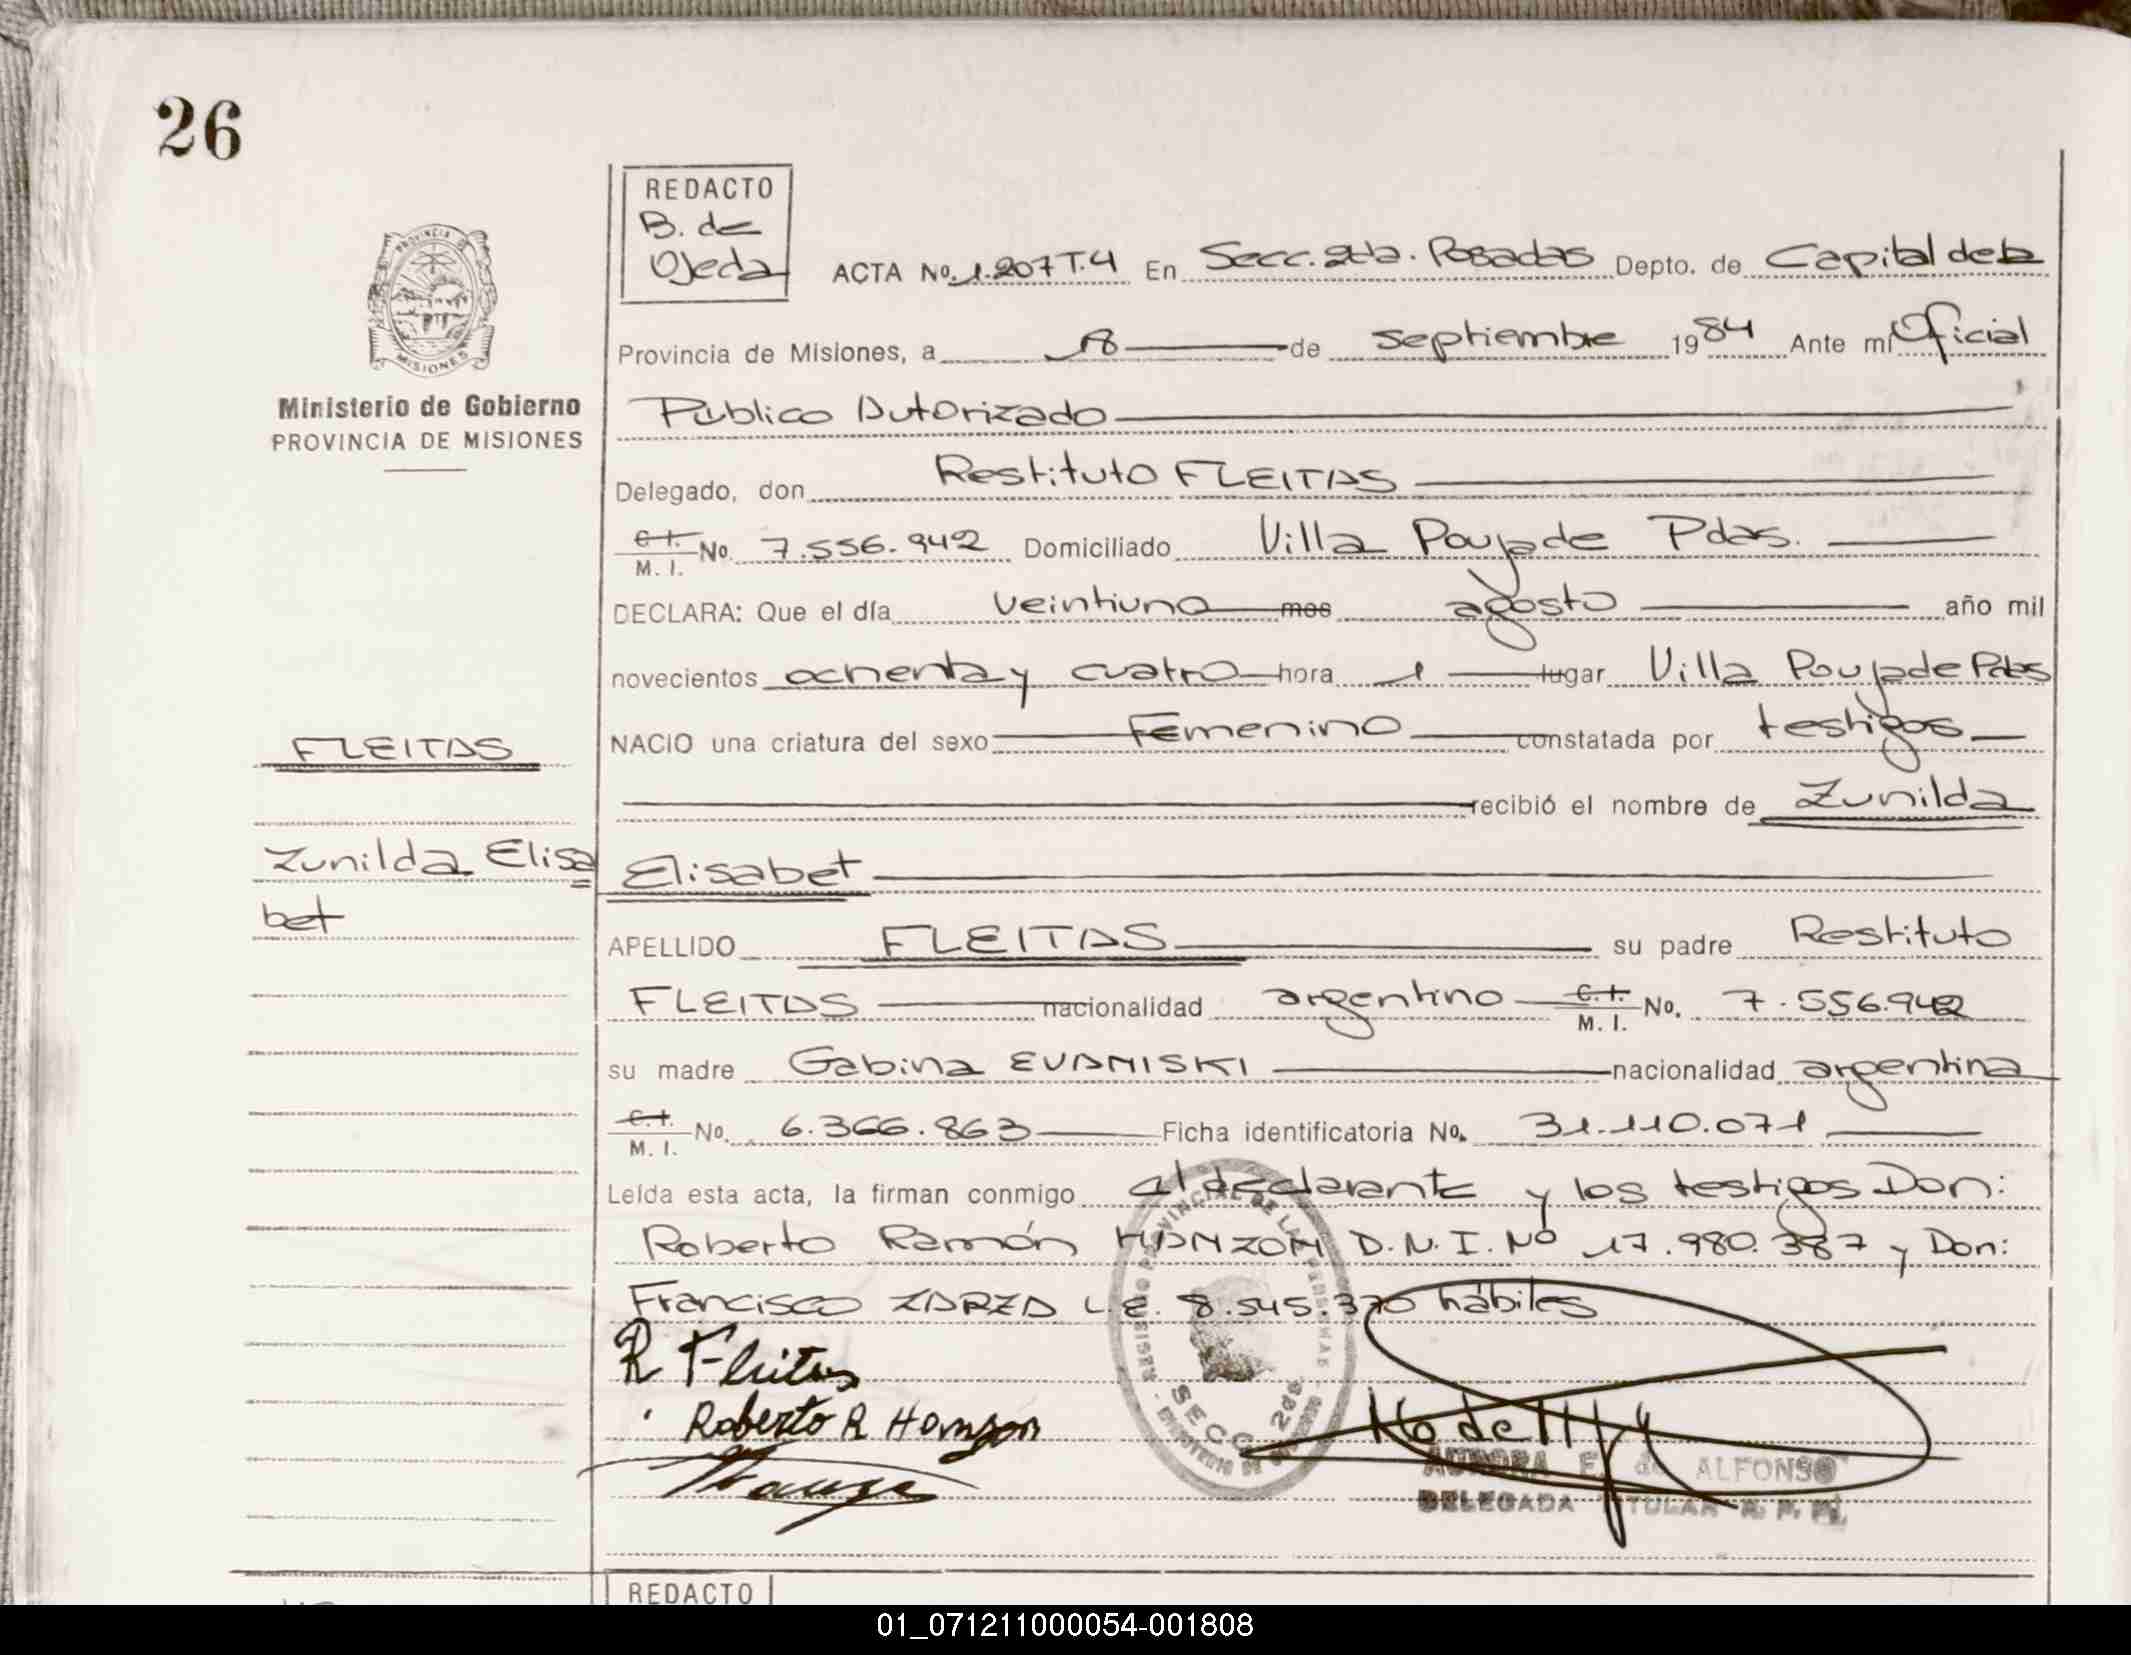 26
REDACTO
B. de
Ojeda
ACTA No. 1.207 T.4 En Secc. 2da. Posadas Depto. de Capital de la
Provincia de Misiones, a 18 de septiembre 1984 Ante mí Oficial
Público Autorizado
Ministerio de Gobierno
PROVINCIA DE MISIONES
Delegado, don Restituto FLEITAS
C.I. M. I. No. 7.556.942 Domiciliado Villa Poujade Pdas.
DECLARA: Que el día veintiuno mes agosto año mil
novecientos ochenta y cuatro hora 1 lugar Villa Poujade Pdas
NACIO una criatura del sexo Femenino constatada por testigos
FLEITAS
recibió el nombre de Zunilda
Zunilda Elisa
bet
Elisabet
APELLIDO FLEITAS su padre Restituto
FLEITAS nacionalidad argentino C.I. M. I. No. 7.556.942
su madre Gabina EVANISKI nacionalidad argentina
C.I. M. I. No. 6.366.863 Ficha identificatoria No. 31.110.071
Leída esta acta, la firman conmigo el declarante y los testigos Don:
Roberto Ramón HANZON D.N.I. Nº 17.980.387 y Don:
Francisco ZARZA L.E. 8.545.370 hábiles
R Fleitas
Roberto R Hanzon
REGISTRO PROVINCIAL DE LAS PERSONAS
SECC. 2da.
AURORA E. de ALFONSO
DELEGADA TITULAR R. P. P.
REDACTO
01_071211000054-001808